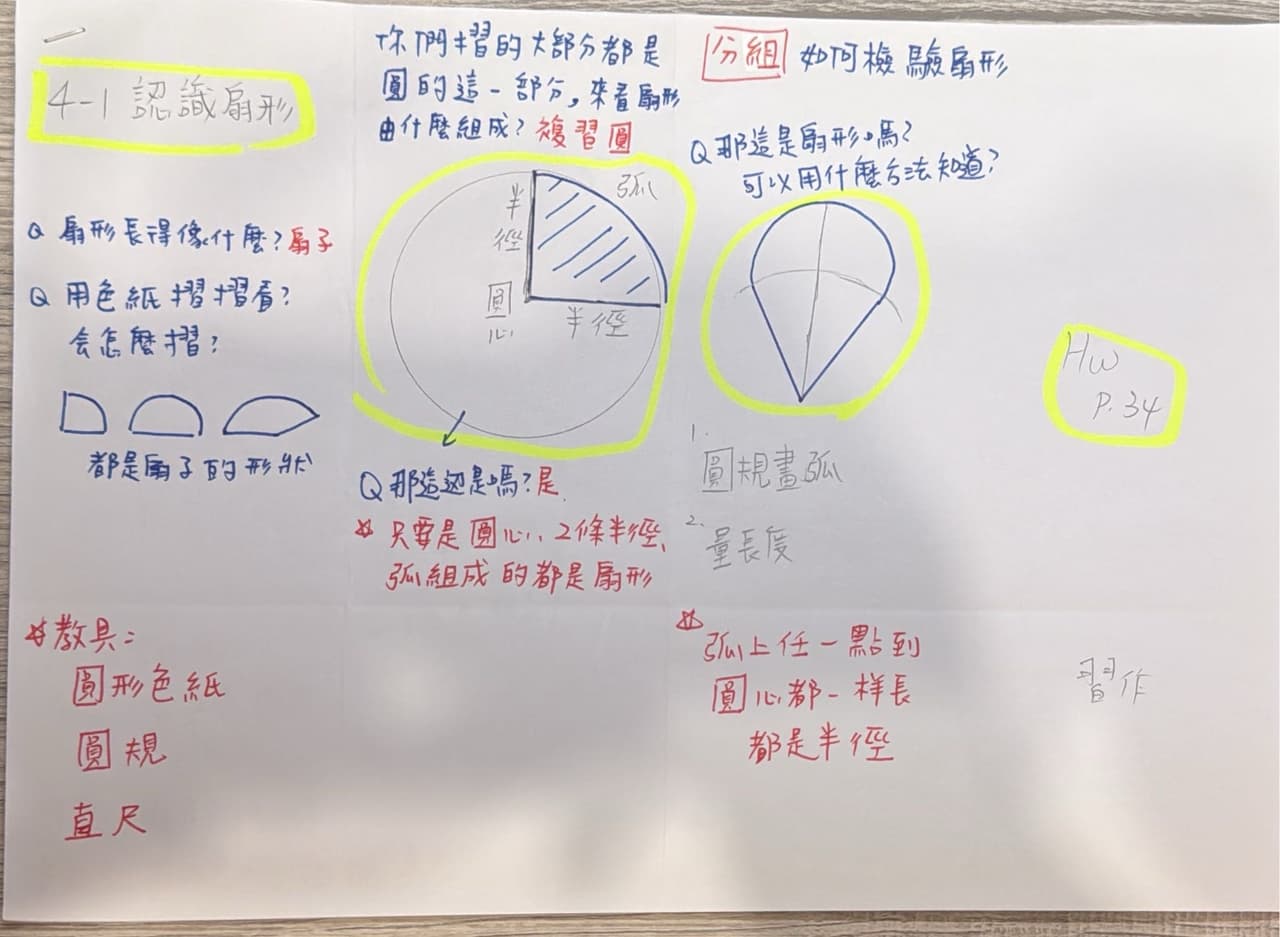 4-1 認識扇形
Q 扇形長得像什麼？扇子
Q 用色紙摺摺看？
会怎麼摺？
都是扇子的形狀
*教具：
圓形色紙
圓規
直尺
你們摺的大部分都是
圓的這一部分，來看扇形
由什麼組成？複習圓
弧
半徑
圓心
半徑
Q 那這边是嗎？是
*只要是圓心、2條半徑、
弧組成的都是扇形
分組 如何檢驗扇形
Q 那這是扇形嗎？
可以用什麼方法知道？
1.
圓規畫弧
2.
量長度
*
弧上任一點到
圓心都一样長
都是半徑
Hw
P.34
習作